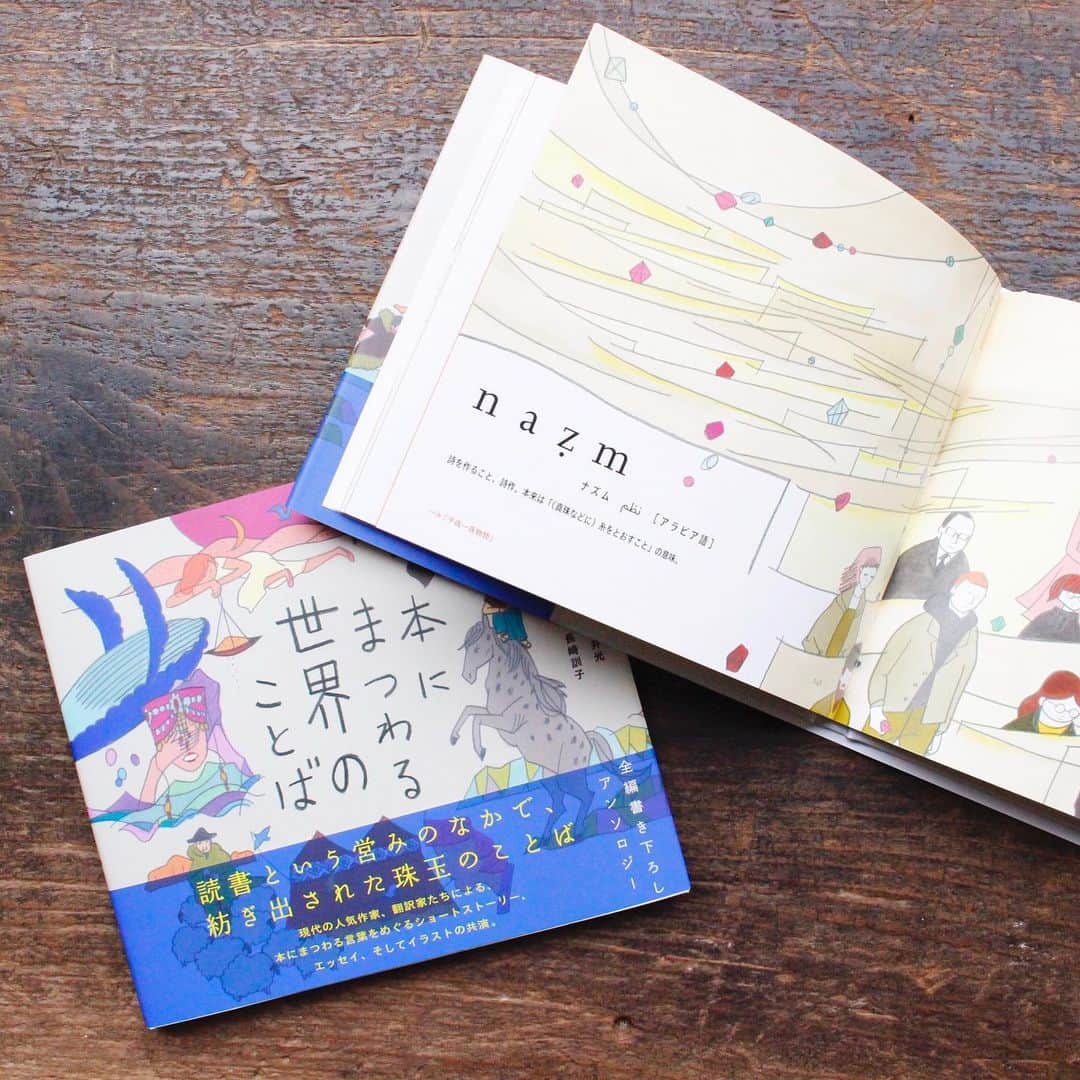 nazm
ナズム نظم [アラビア語]
詩を作ること、詩作。本来は「(真珠などに)糸をとおすこと」の意味。
本に
まつわる
世界の
ことば
崎訓子
読書という営みのなかで、
紡ぎ出された珠玉のことば
現代の人気作家、翻訳家たちによる、
本にまつわる言葉をめぐるショートストーリー、
エッセイ、そしてイラストの共演。
全編書き下ろし
アンソロジー